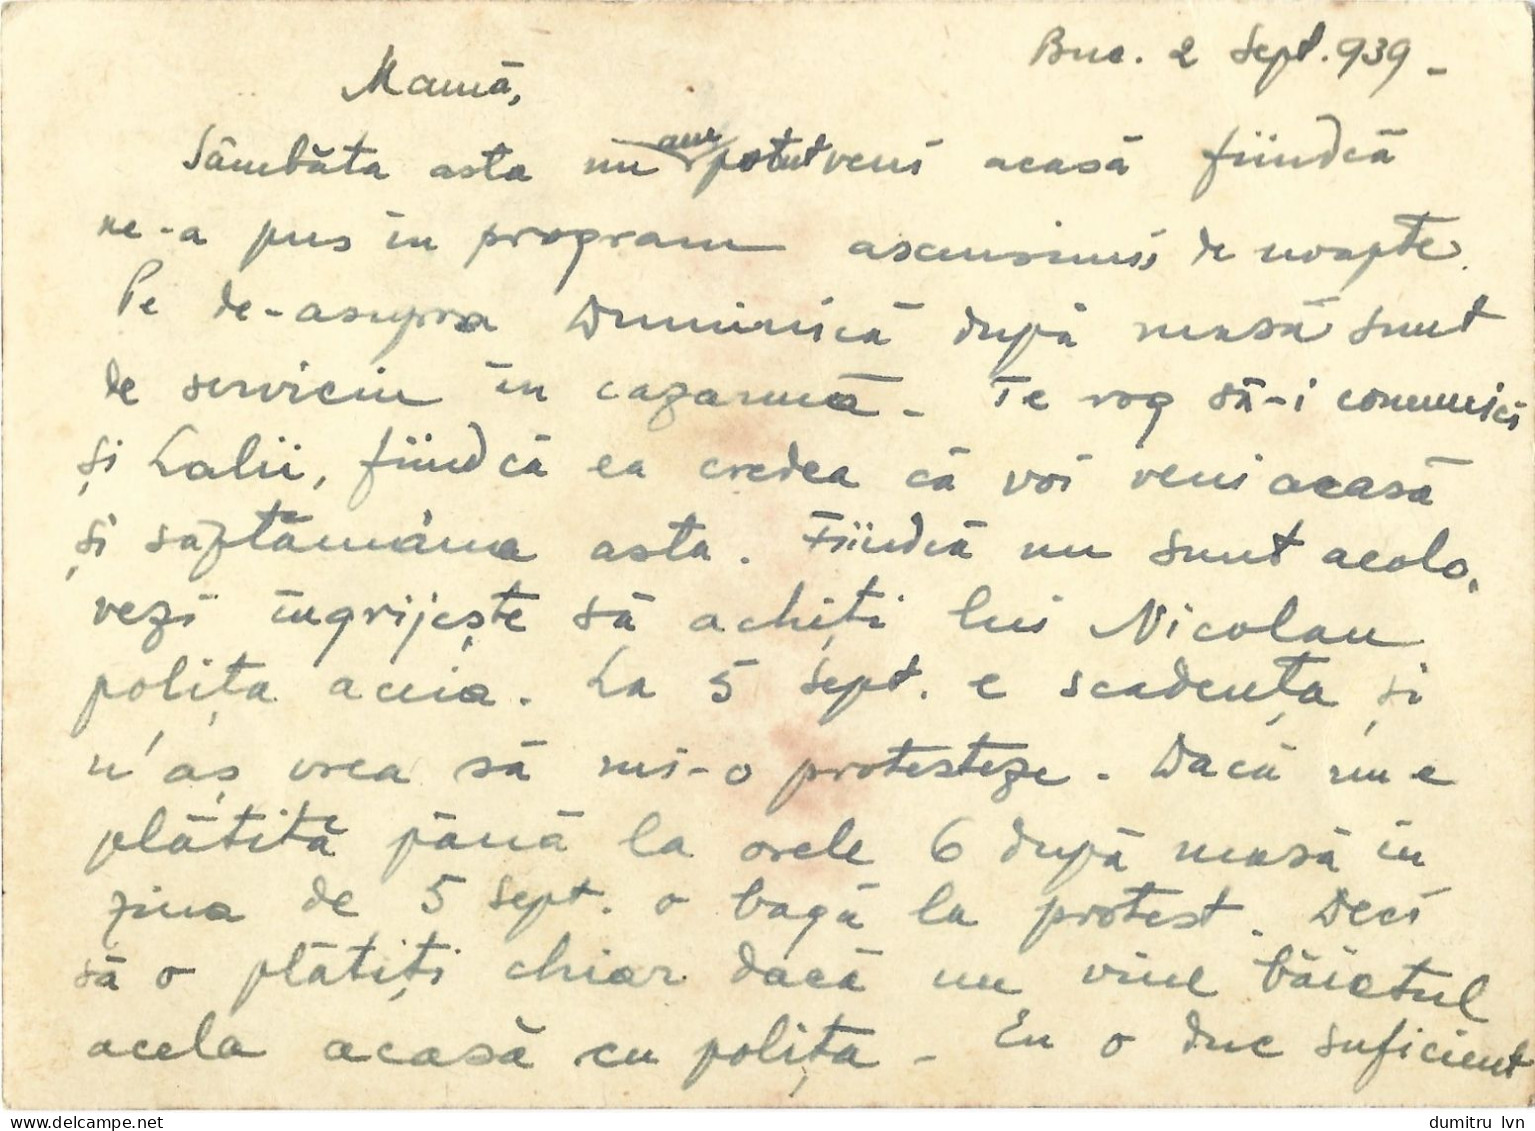 Buc. 2 Sept. 939 -
Mamă,
Sâmbăta asta nu am putut veni acasă fiindcă
ne-a pus în program ascensiuni de noapte.
Pe de-asupra Duminică după masă sunt
de serviciu în cazarmă - Te rog să-i comunici
și Lalii, fiindcă ea credea că voi veni acasă
și săptămâna asta. Fiindcă nu sunt acolo,
vezi îngrijește să achiți lui Nicolau
polița aceia. La 5 Sept. e scadența și
n'aș vrea să mi-o protesteze. Dacă nu e
plătită până la orele 6 după masă în
ziua de 5 Sept. o bagă la protest. Deci
să o plătiți chiar dacă nu vine băietul
acela acasă cu polița - Eu o duc suficient
dumitru_lvn
delcampe.net